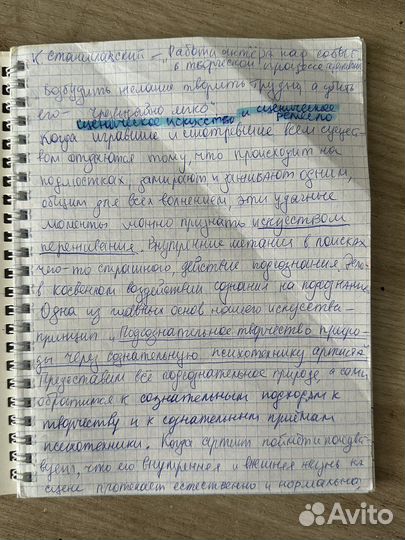 К Станиславский – Работа актёра над собой
в творческом процессе
Возбудить желание творить трудно, а убить
его – чрезвычайно легко
сценическое искусство и сценическое
ремесло
Когда игравшие и смотревшие всем сущест-
вом отдаются тому, что происходит на
подмостках, замирают и заживают одним,
общим для всех волнением, эти удачные
моменты можно признать искусством
переживания. Внутренне метался в поисках
чего-то страшного, действие подсознания. Дело
в косвенном воздействии сознания на подсознание
Одна из главных основ нашего искусства –
принцип „Подсознательное творчество приро-
ды через сознательную психотехнику артиста
Предоставим всё подсознательное природе, а сами
обратимся к сознательным подходам к
творчеству и к сознательным приёмам
психотехники. Когда артист поймёт и почувст-
вует, что его внутренняя и внешняя жизнь на
сцене протекает естественно и нормально,
Avito